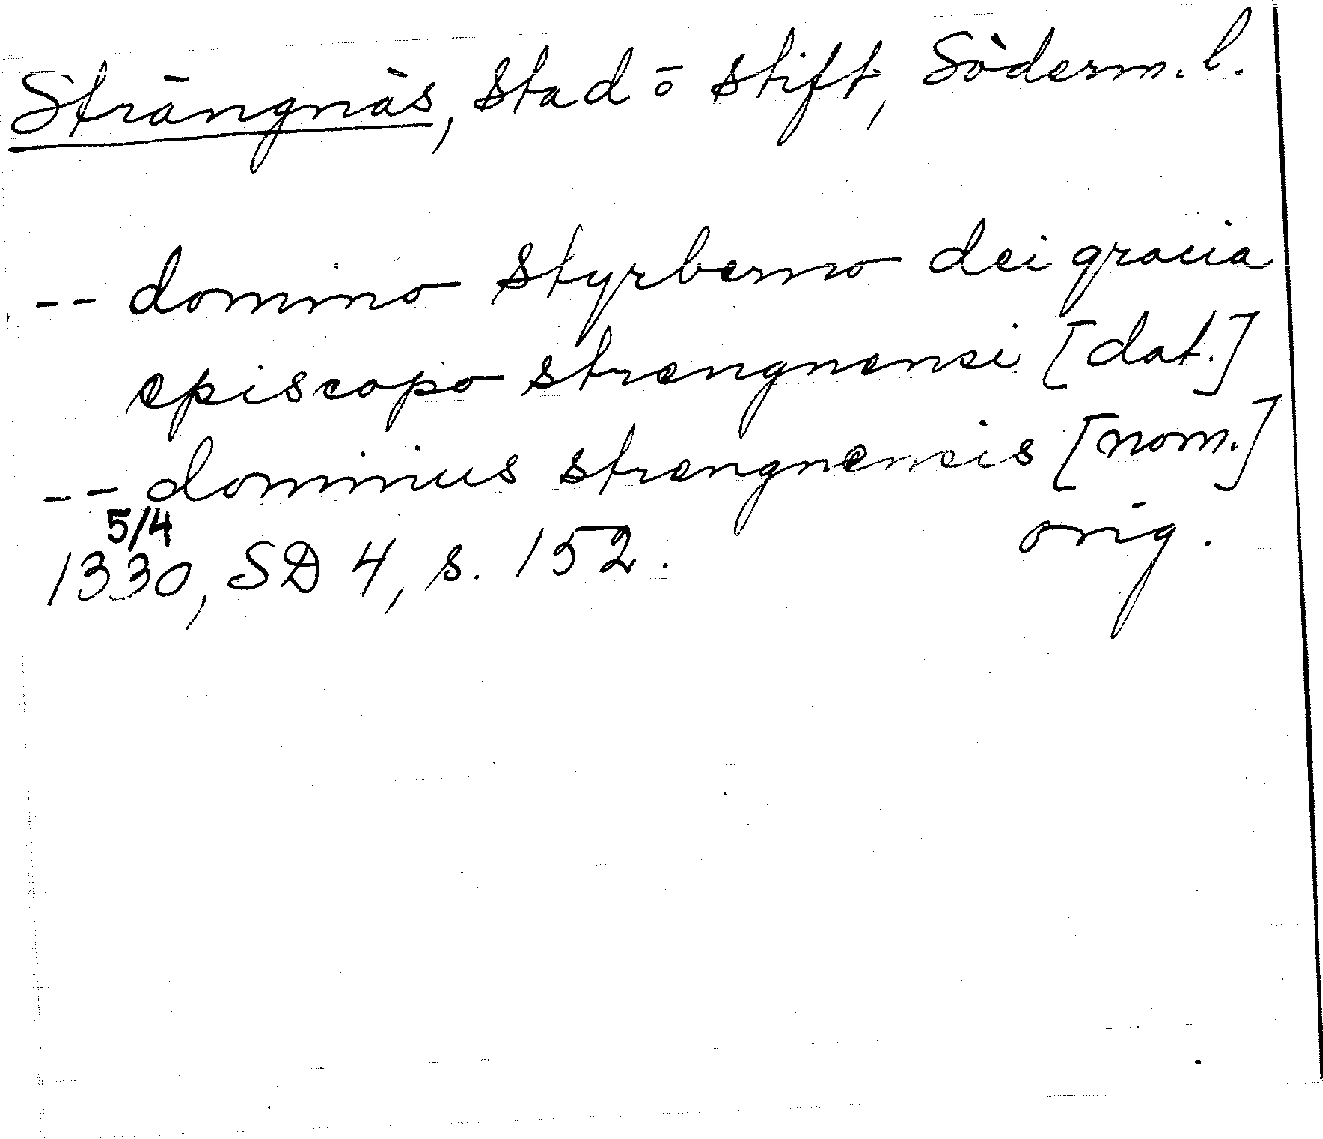 Strängnäs, stad o stift, Söderm. l.
-- domino styrberno dei gracia
episcopo strengnensi [dat.]
-- dominus strengnensis [nom.]
5/4
1330, SD 4, s. 152. orig.